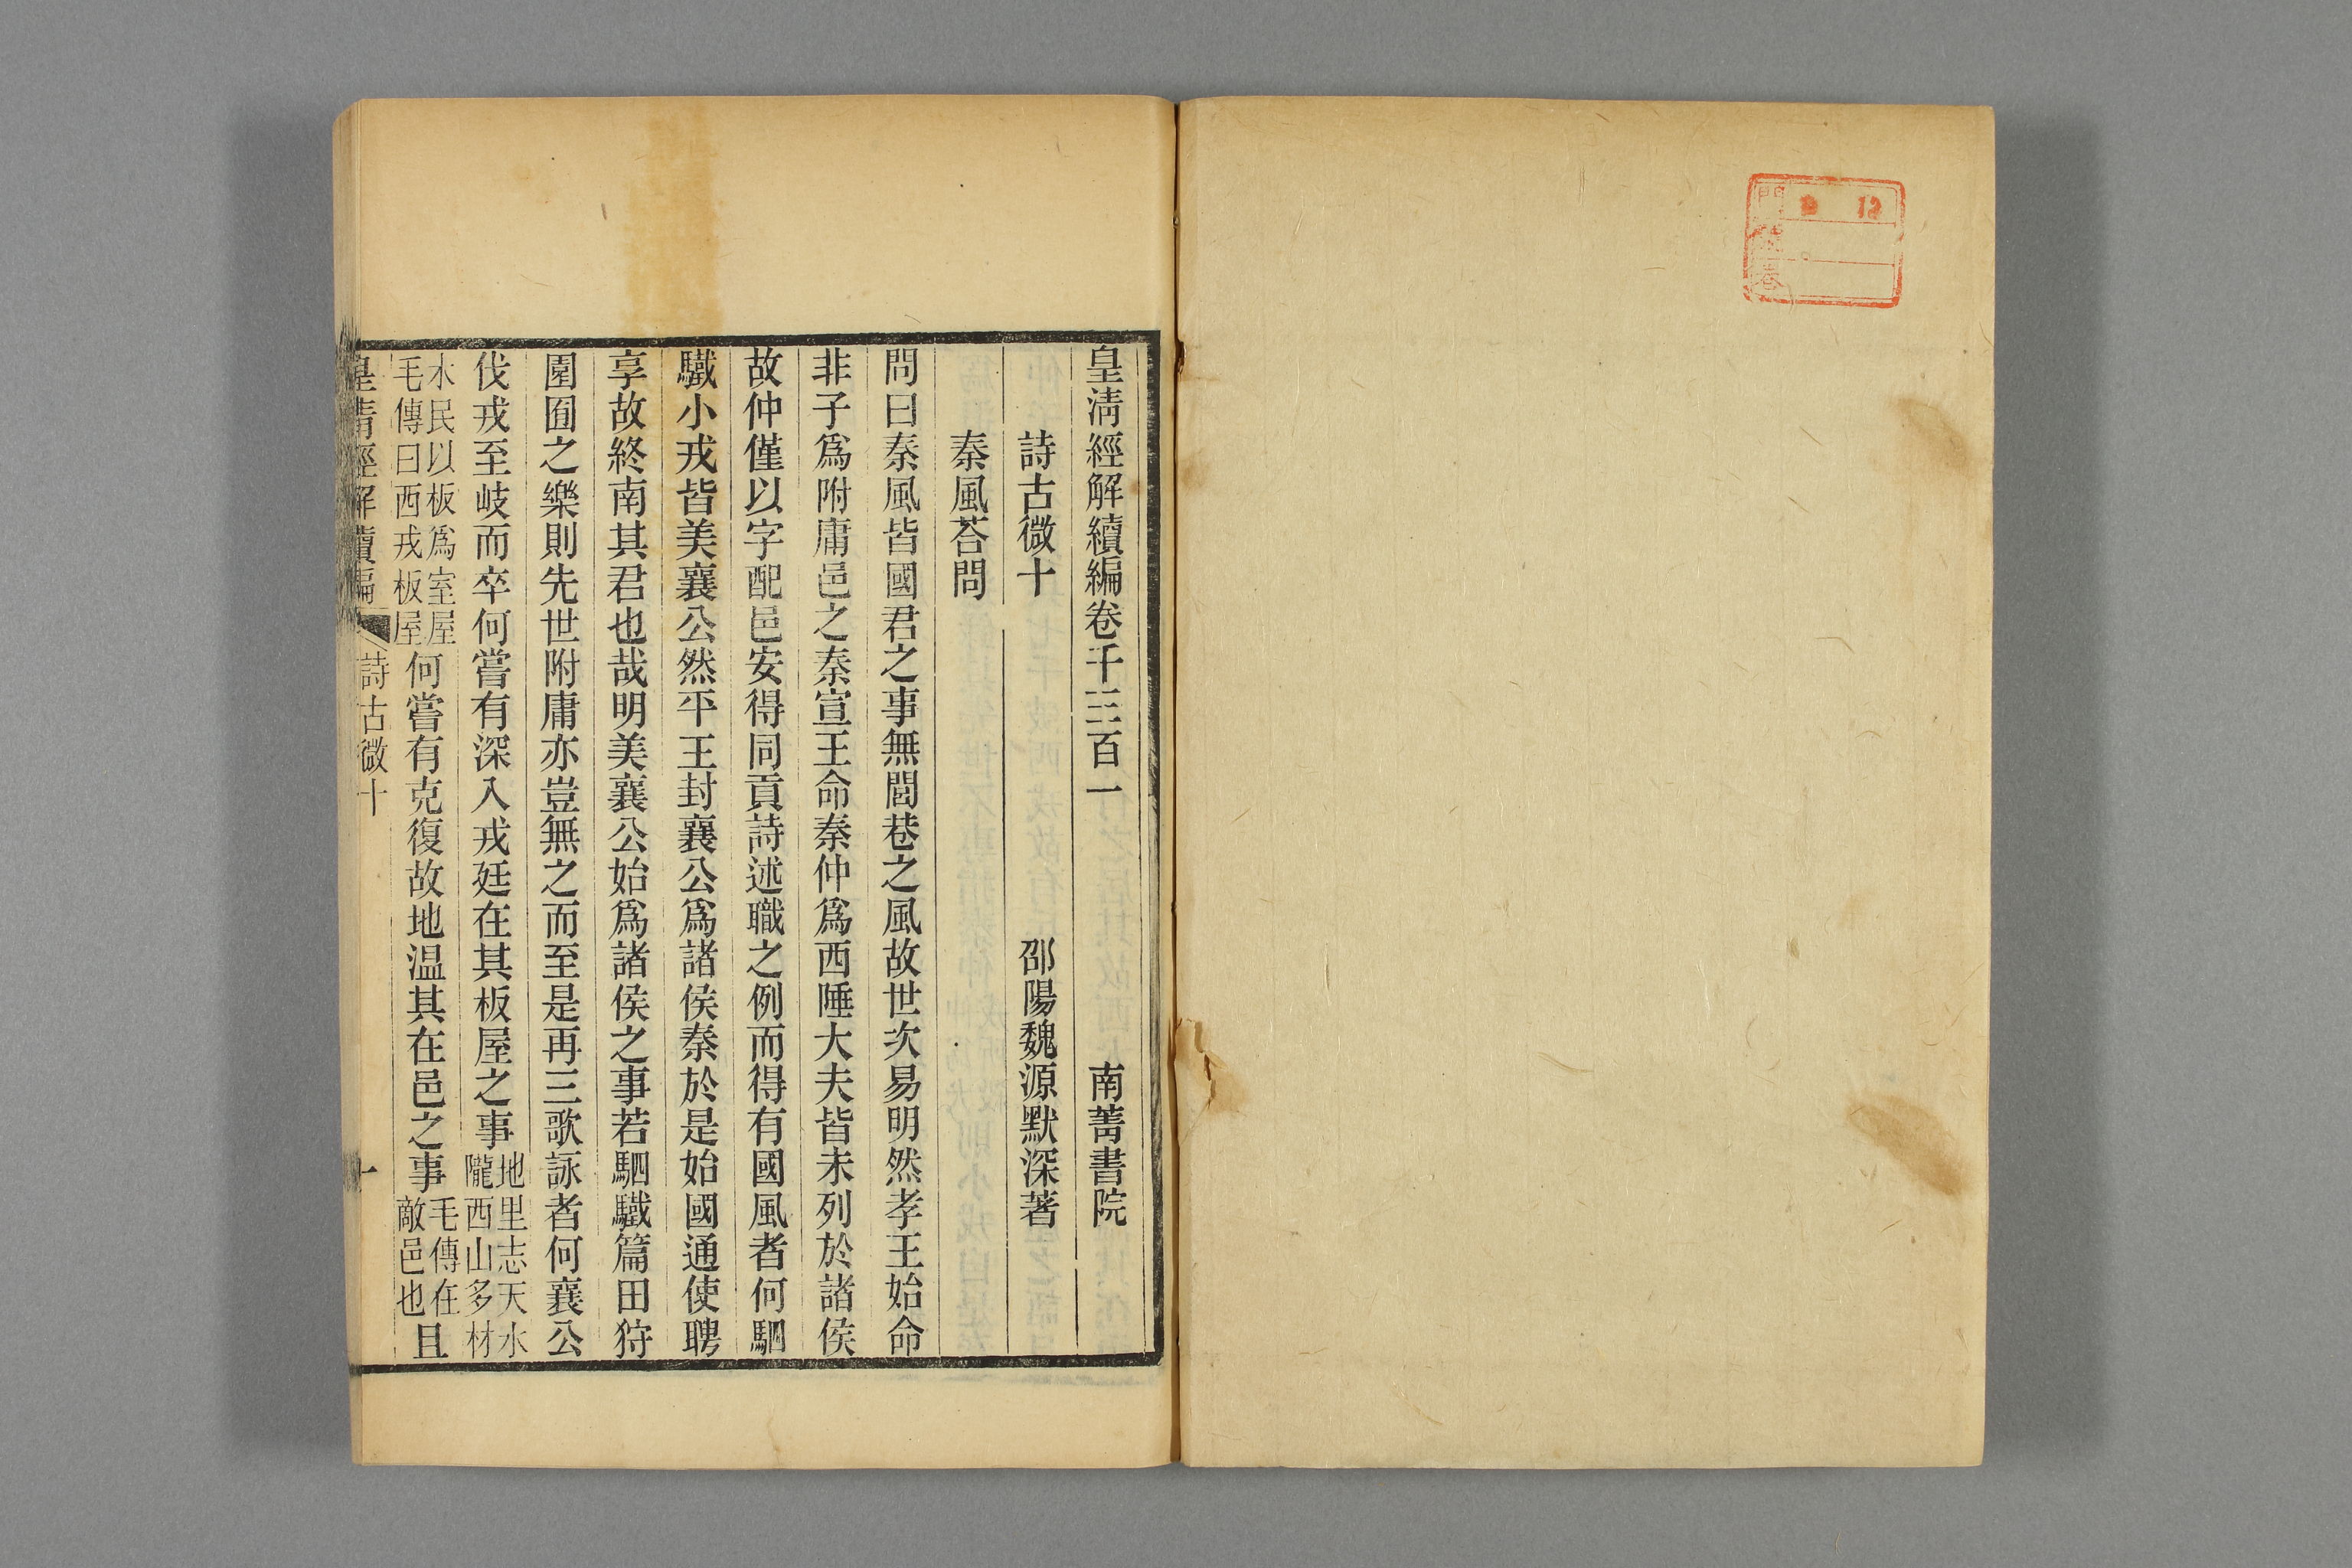 皇清經解續編卷千三百一
南菁書院
詩古微十
邵陽魏源默深著
秦風荅問
問曰秦風皆國君之事無閭巷之風故世次易明然孝王始命
非子爲附庸邑之秦宣王命秦仲爲西陲大夫皆未列於諸侯
故仲僅以字配邑安得同貢詩述職之例而得有國風者何駟
驖小戎皆美襄公然平王封襄公爲諸侯秦於是始國通使聘
享故終南其君也哉明美襄公始爲諸侯之事若駟驖篇田狩
園囿之樂則先世附庸亦豈無之而至是再三歌詠者何襄公
伐戎至岐而卒何嘗有深入戎廷在其板屋之事地里志天水
隴西山多材
木民以板爲室屋
毛傳曰西戎板屋何嘗有克復故地温其在邑之事毛傳在
敵邑也且
皇清經解續編
詩古微十
一
門
卷
12